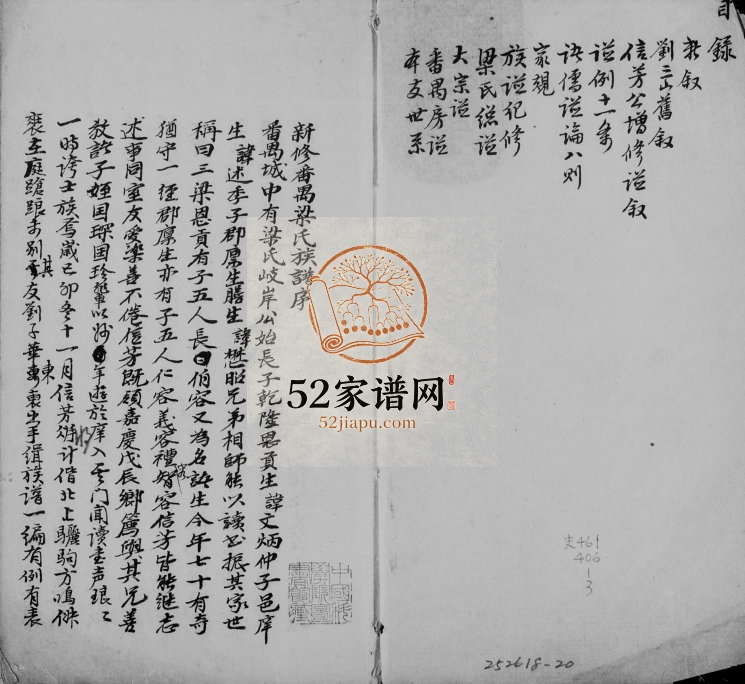 目錄
劉三山舊叙
信芳公增修谥叙
谥例十一条
诸儒谥論八则
家規
族谥纪修
梁氏総谥
大宗谥
番禺房谥
本支世系
新修番禺梁氏族譜序
番禺城中有梁氏岐岸公始長子乾隆恩貢生諱文炳仲子邑庠
生諱述季子郡廪生膳生諱懋昭兄弟相師能以讀书振其家世
稱曰三梁恩貢有子五人長曰伯容又為名諸生今年七十有奇
猶守一徑郡廪生亦有子五人仁容義容禮容智容信芳皆能继志
述事同室友愛染善不倦信芳既領嘉慶戊辰鄉薦與其兄善
教諸子姪国琛国珍輩以妙年遊於庠入其门聞读书声琅〻
一時誇士族焉歲己卯冬十一月信芳将计偕北上驪駒方鳴侏
裝在庭蹌踉未别其友劉子華東裏出手缉族谱一编有例有表
52家谱网
52jiapu.com
史461
406
1
3
252618-20